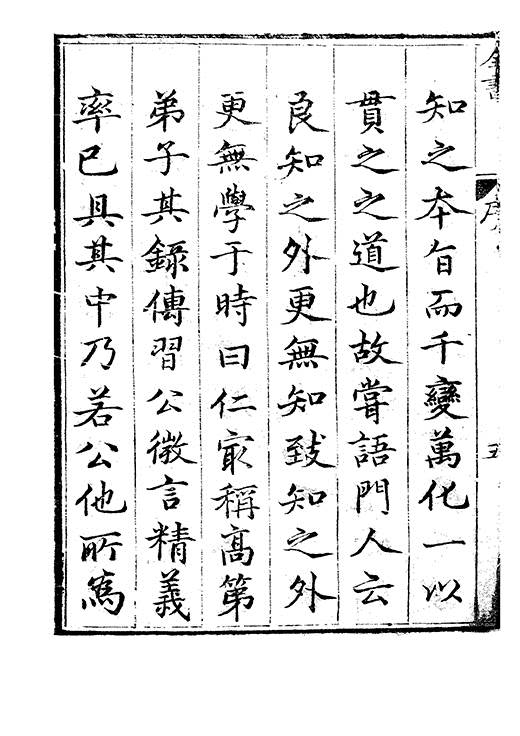 全書
序
五
知之本旨而千變萬化一以
貫之之道也故嘗語門人云
良知之外更無知致知之外
更無學于時曰仁㝡稱高第
弟子其錄傳習公微言精義
率已具其中乃若公他所為